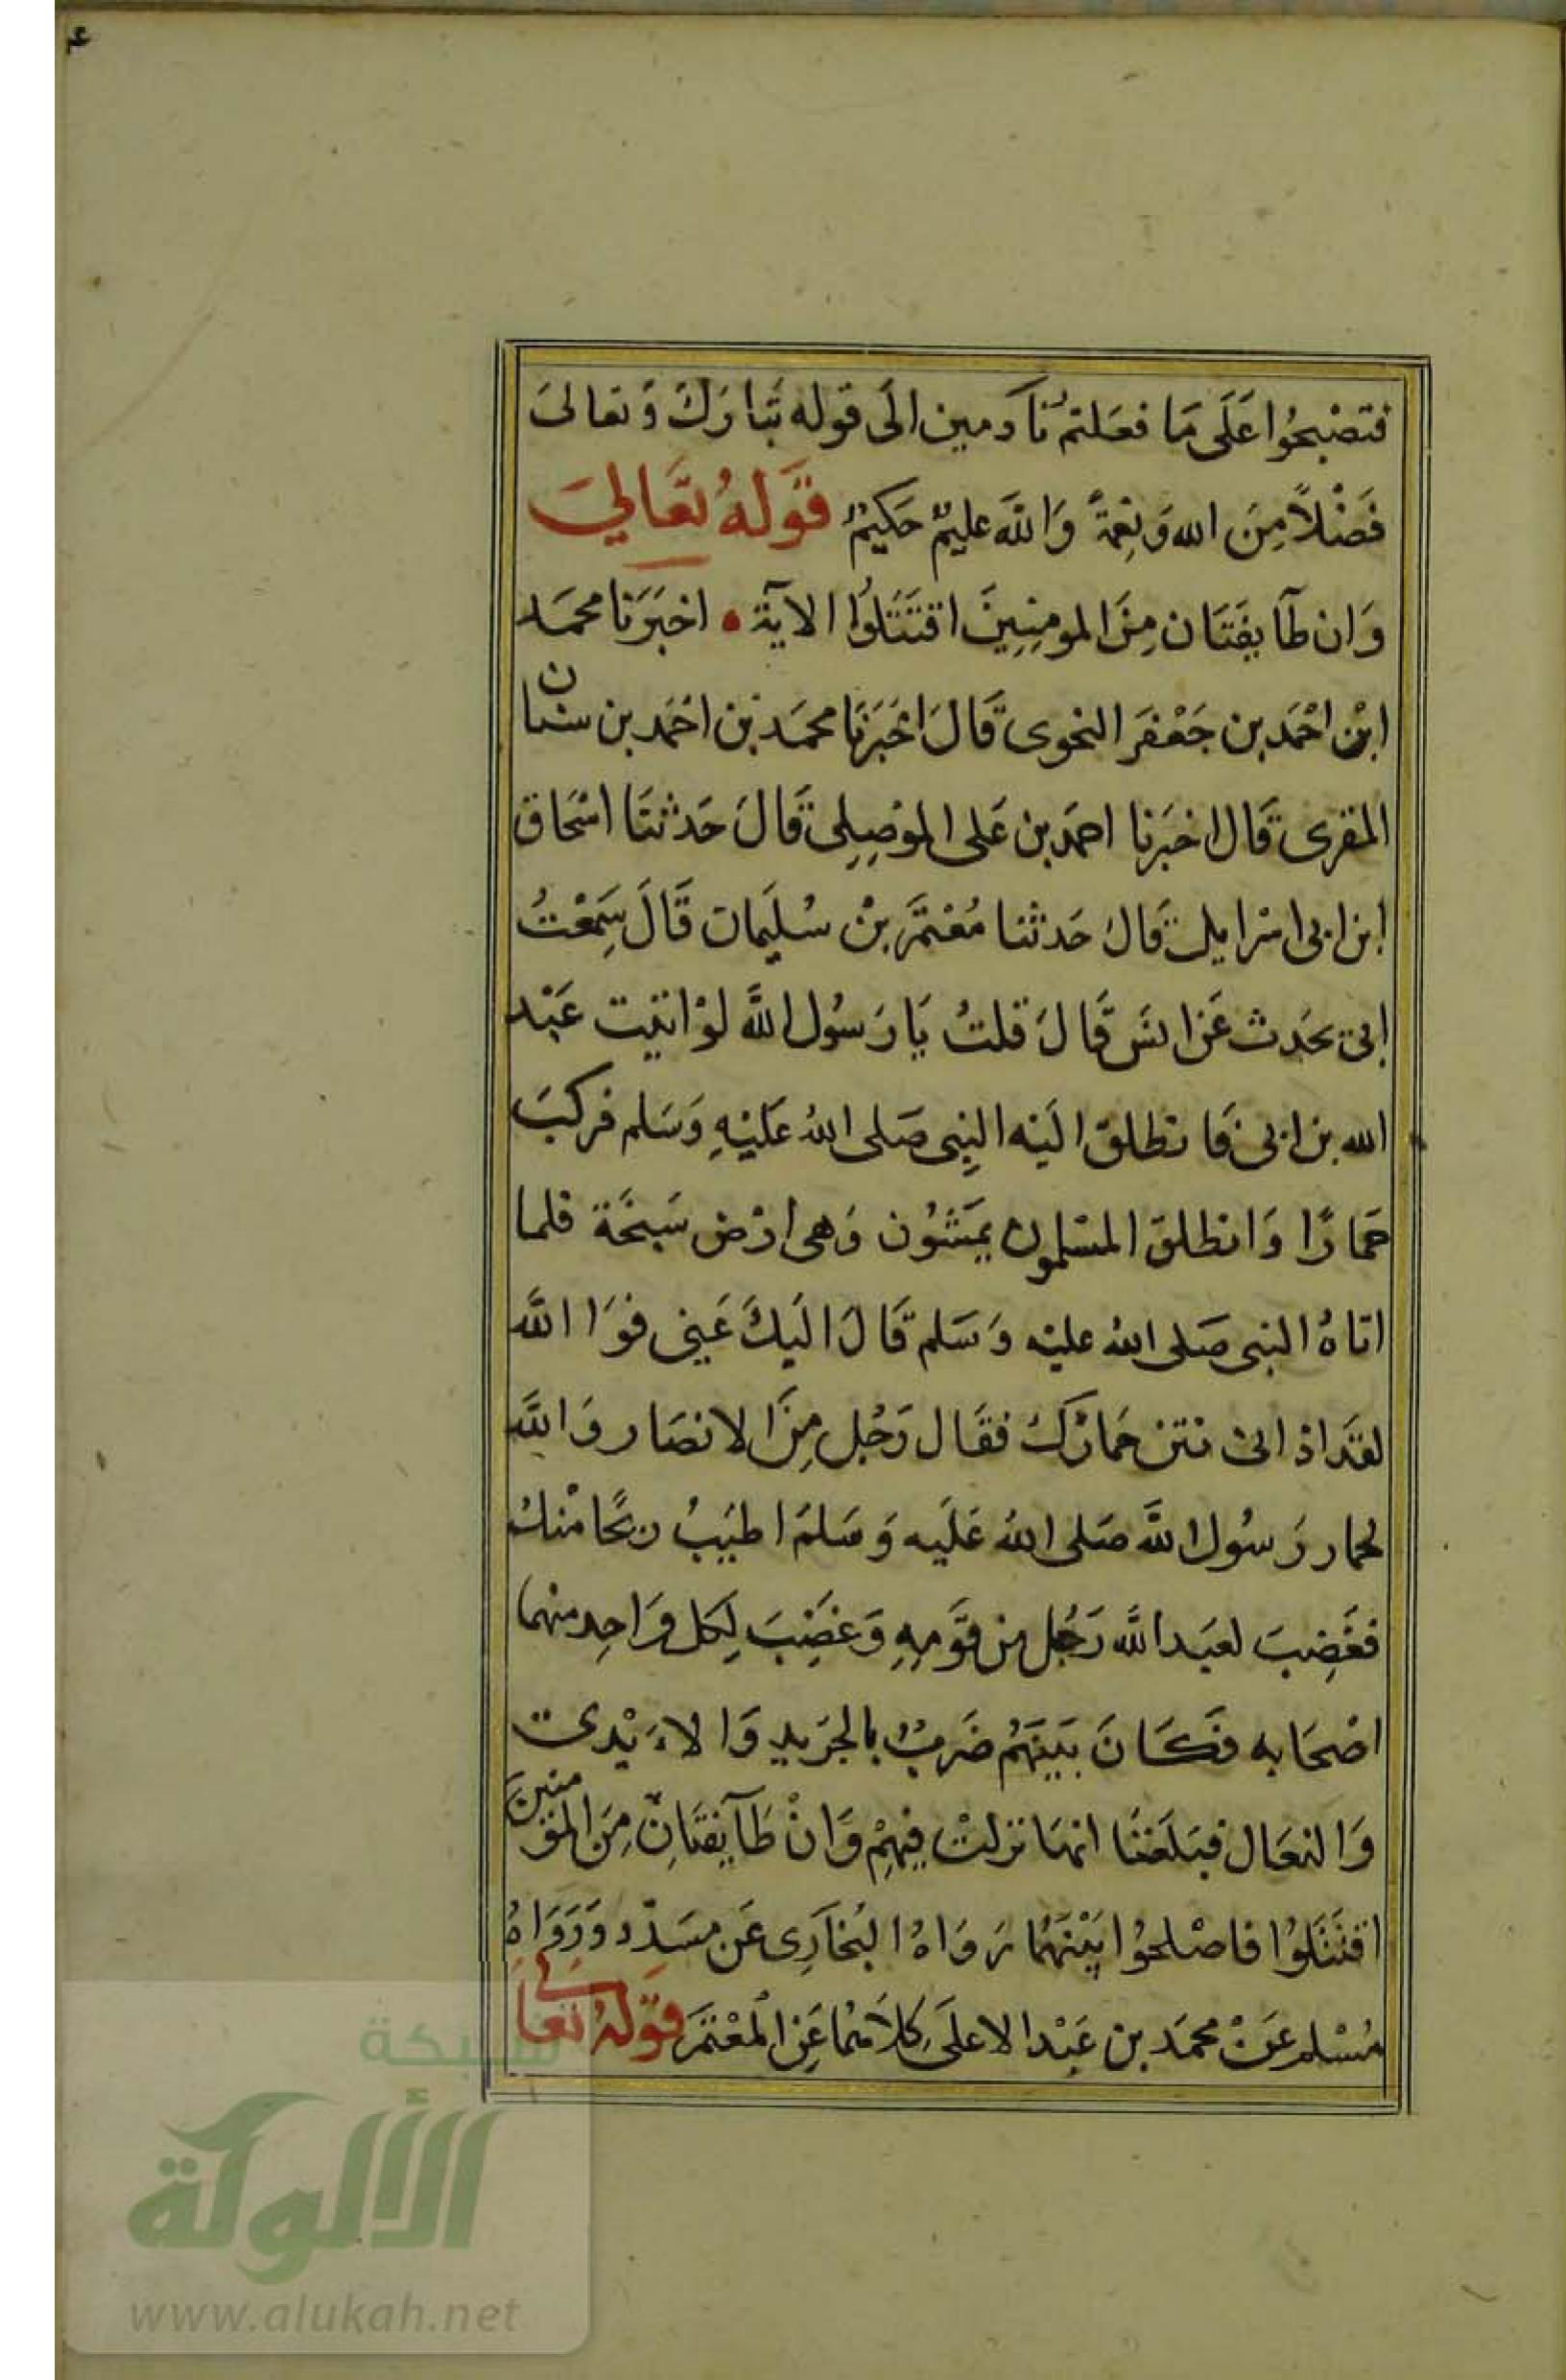 ٤
فتصْبحُوا عَلَى مَا فعَلتمْ نَادمين الَى قوله تَبَارَكَ وَتعالىَ
فَضْلاً مِنَ الله وَنِعْمَةً وَاللَّه عليمٌ حَكيمٌ قَوْلهُ تعَالىَ
وَان طآيفَتَان مِنَ المومِنِينَ اقتَتَلُوا الآية • اخبَرَنا محمَد
ابْن احْمَد بن جَعْفَر النحوى قَالَ اخْبَرَنَا محمَد بْن احْمَد بن سنان
المقرى قَال اخبَرنا احمَد بن عَلى الموْصِلِى قَالَ حَدثنَا اسْحَاق
ابن ابى اسْرايل قَالَ حَدثنا مُعْتمَر بْن سُليَمان قَالَ سَمِعْتُ
ابى يحَدث عَن انسَ قَالَ قلتُ يَا رَسُول اللَّه لوْ اتيْت عَبْد
الله بن ابى فَانطلق الَيْه النبِى صَلى اللهُ عَليْهِ وَسَلم فركبَ
حمَارًا وَانطلق المسْلمون يمَشُون وَهى ارْض سَبخَة فلما
اتاهُ النبى صَلى اللهُ عليْه وَسَلم قَالَ الَيكَ عَنِى فوَا اللَّه
لقدَ اذانى نتن حمَارَكَ فقَال رَجُل مِنَ الانصَار وَاللَّه
لحمار رَسُول اللَّه صَلى اللهُ عَليَه وَسَلمَ اطيَبُ ريحًا مْنكَ
فغَضِبَ لعبَد اللَّه رَجُل من قوَمِهِ وَغضِبَ لِكل وَاحِد منهما
اصْحَابه فكَانَ بيَنهَمُ ضَربٌ بالجرَيد وَالايْدى
وَالنعَال فبَلغَنَا انهَا نزلتْ فيِهمْ وَانْ طَآيفتَانِ مِنَ المؤمنين
اقتَتَلُوا فاصْلحُوا بَيْنَهُمَا رَوَاهُ البُخارَى عَن مسَدّد وَرَوَاهُ
مُسْلم عَنْ محمَد بن عَبْد الاعلَى كلاَهمُا عَن المعْتمَر قوْلهُ تعَالى
شبكة
الألوكة
www.alukah.net